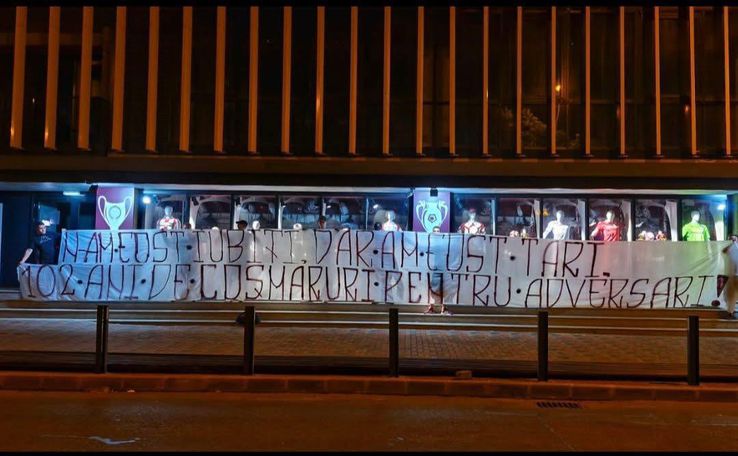 N-AM·FOST·IUBIȚI, DAR·AM·FOST·TARI.
102·ANI·DE·COȘMARURI·PENTRU·ADVERSARI!